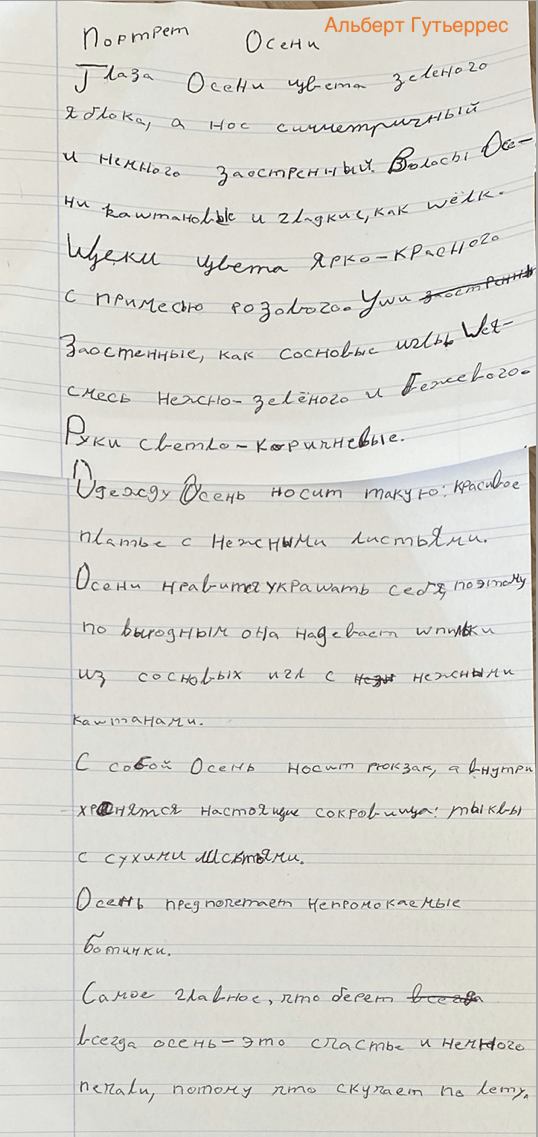 Альберт Гутьеррес
Портрет Осени
Глаза Осени цвета зеленого
яблока, а нос симметричный
и немного заостренный. Волосы Осе-
ни каштановые и гладкие, как шёлк.
Щеки цвета ярко-красного
с примесью розового. Уши
Заостенные, как сосновые иглы
смесь нежно-зелёного и бежевого.
Руки светло-коричневые.
Одежду Осень носит такую: красивое
платье с нежными листьями.
Осени нравится украшать себя, поэтому
по выходным она надевает шпильки
из сосновых игл с нежными
каштанами.
С собой Осень носит рюкзак, а внутри
хранятся настоящие сокровища: тыквы
с сухими листьями.
Осень предпочетает непромокаемые
ботинки.
Самое главное, что берет
всегда осень-это счастье и немного
печали, потому что скучает по лету.